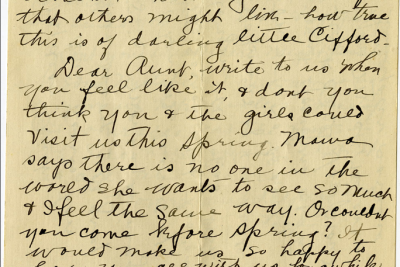 that others might live - how true
this is of darling little Cifford -
Dear Aunt, write to us when
you feel like it, & dont you
think you & the girls could
Visit us this Spring. Mama
says there is no one in the
world she wants to see so much
& I feel the same way. Or couldnt
you come before Spring? It
would make us so happy to